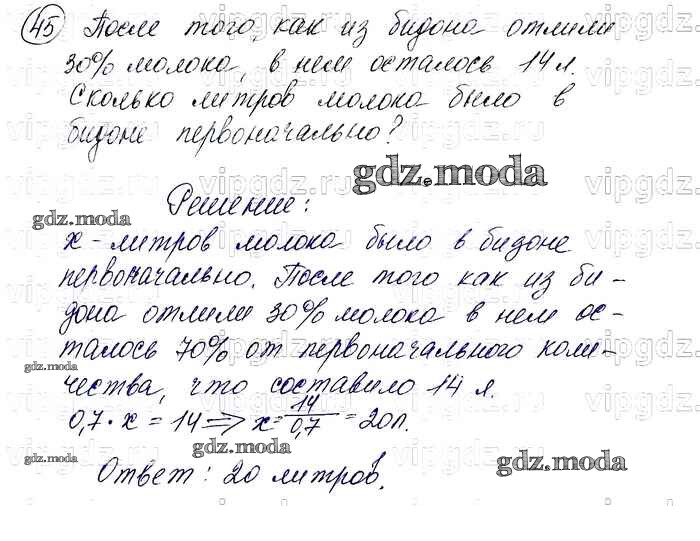 45 После того, как из бидона отлили
30% молока, в нем осталось 14 л.
Сколько литров молока было в
бидоне первоначально?
gdz.moda
Решение:
gdz.moda
x - литров молока было в бидоне
первоначально. После того как из би-
дона отлили 30% молока в нем ос-
талось 70% от первоначального коли-
gdz.moda
чества, что составило 14 л.
0,7 · x = 14 => x = 14/0,7 = 20л.
gdz.moda
gdz.moda
Ответ: 20 литров.